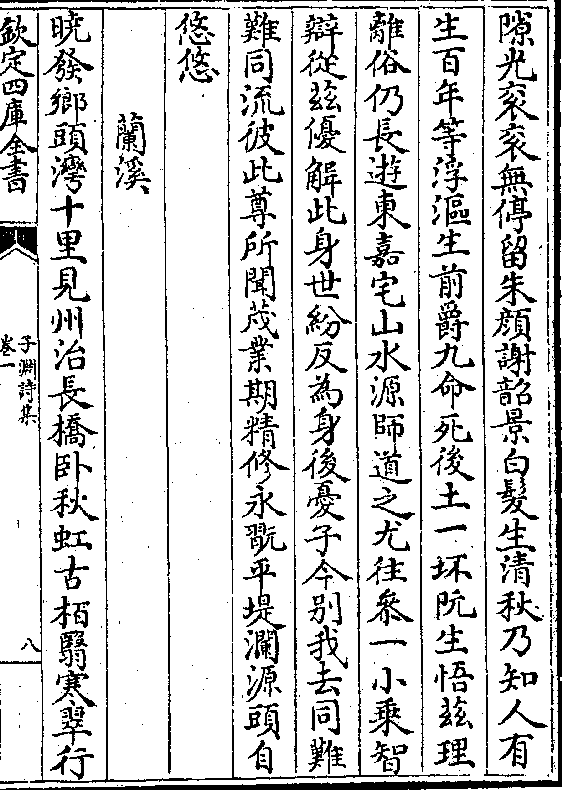 隙光衮衮無停留朱顔謝韶景白髮生清秋乃知人有
生百年等浮漚生前爵九命死後土一坏阮生悟兹理
離俗仍長遊東嘉宅山水源師道之尤往叅一小乗智
辯從兹優解此身世紛反為身後憂子今别我去同難
難同流彼此尊所聞茂業期精修永翫平堤瀾源頭自
悠悠
蘭溪
曉發鄉頭灣十里見州治長橋卧秋虹古栢翳寒翠行
欽定四庫全書
子淵詩集
卷一
八